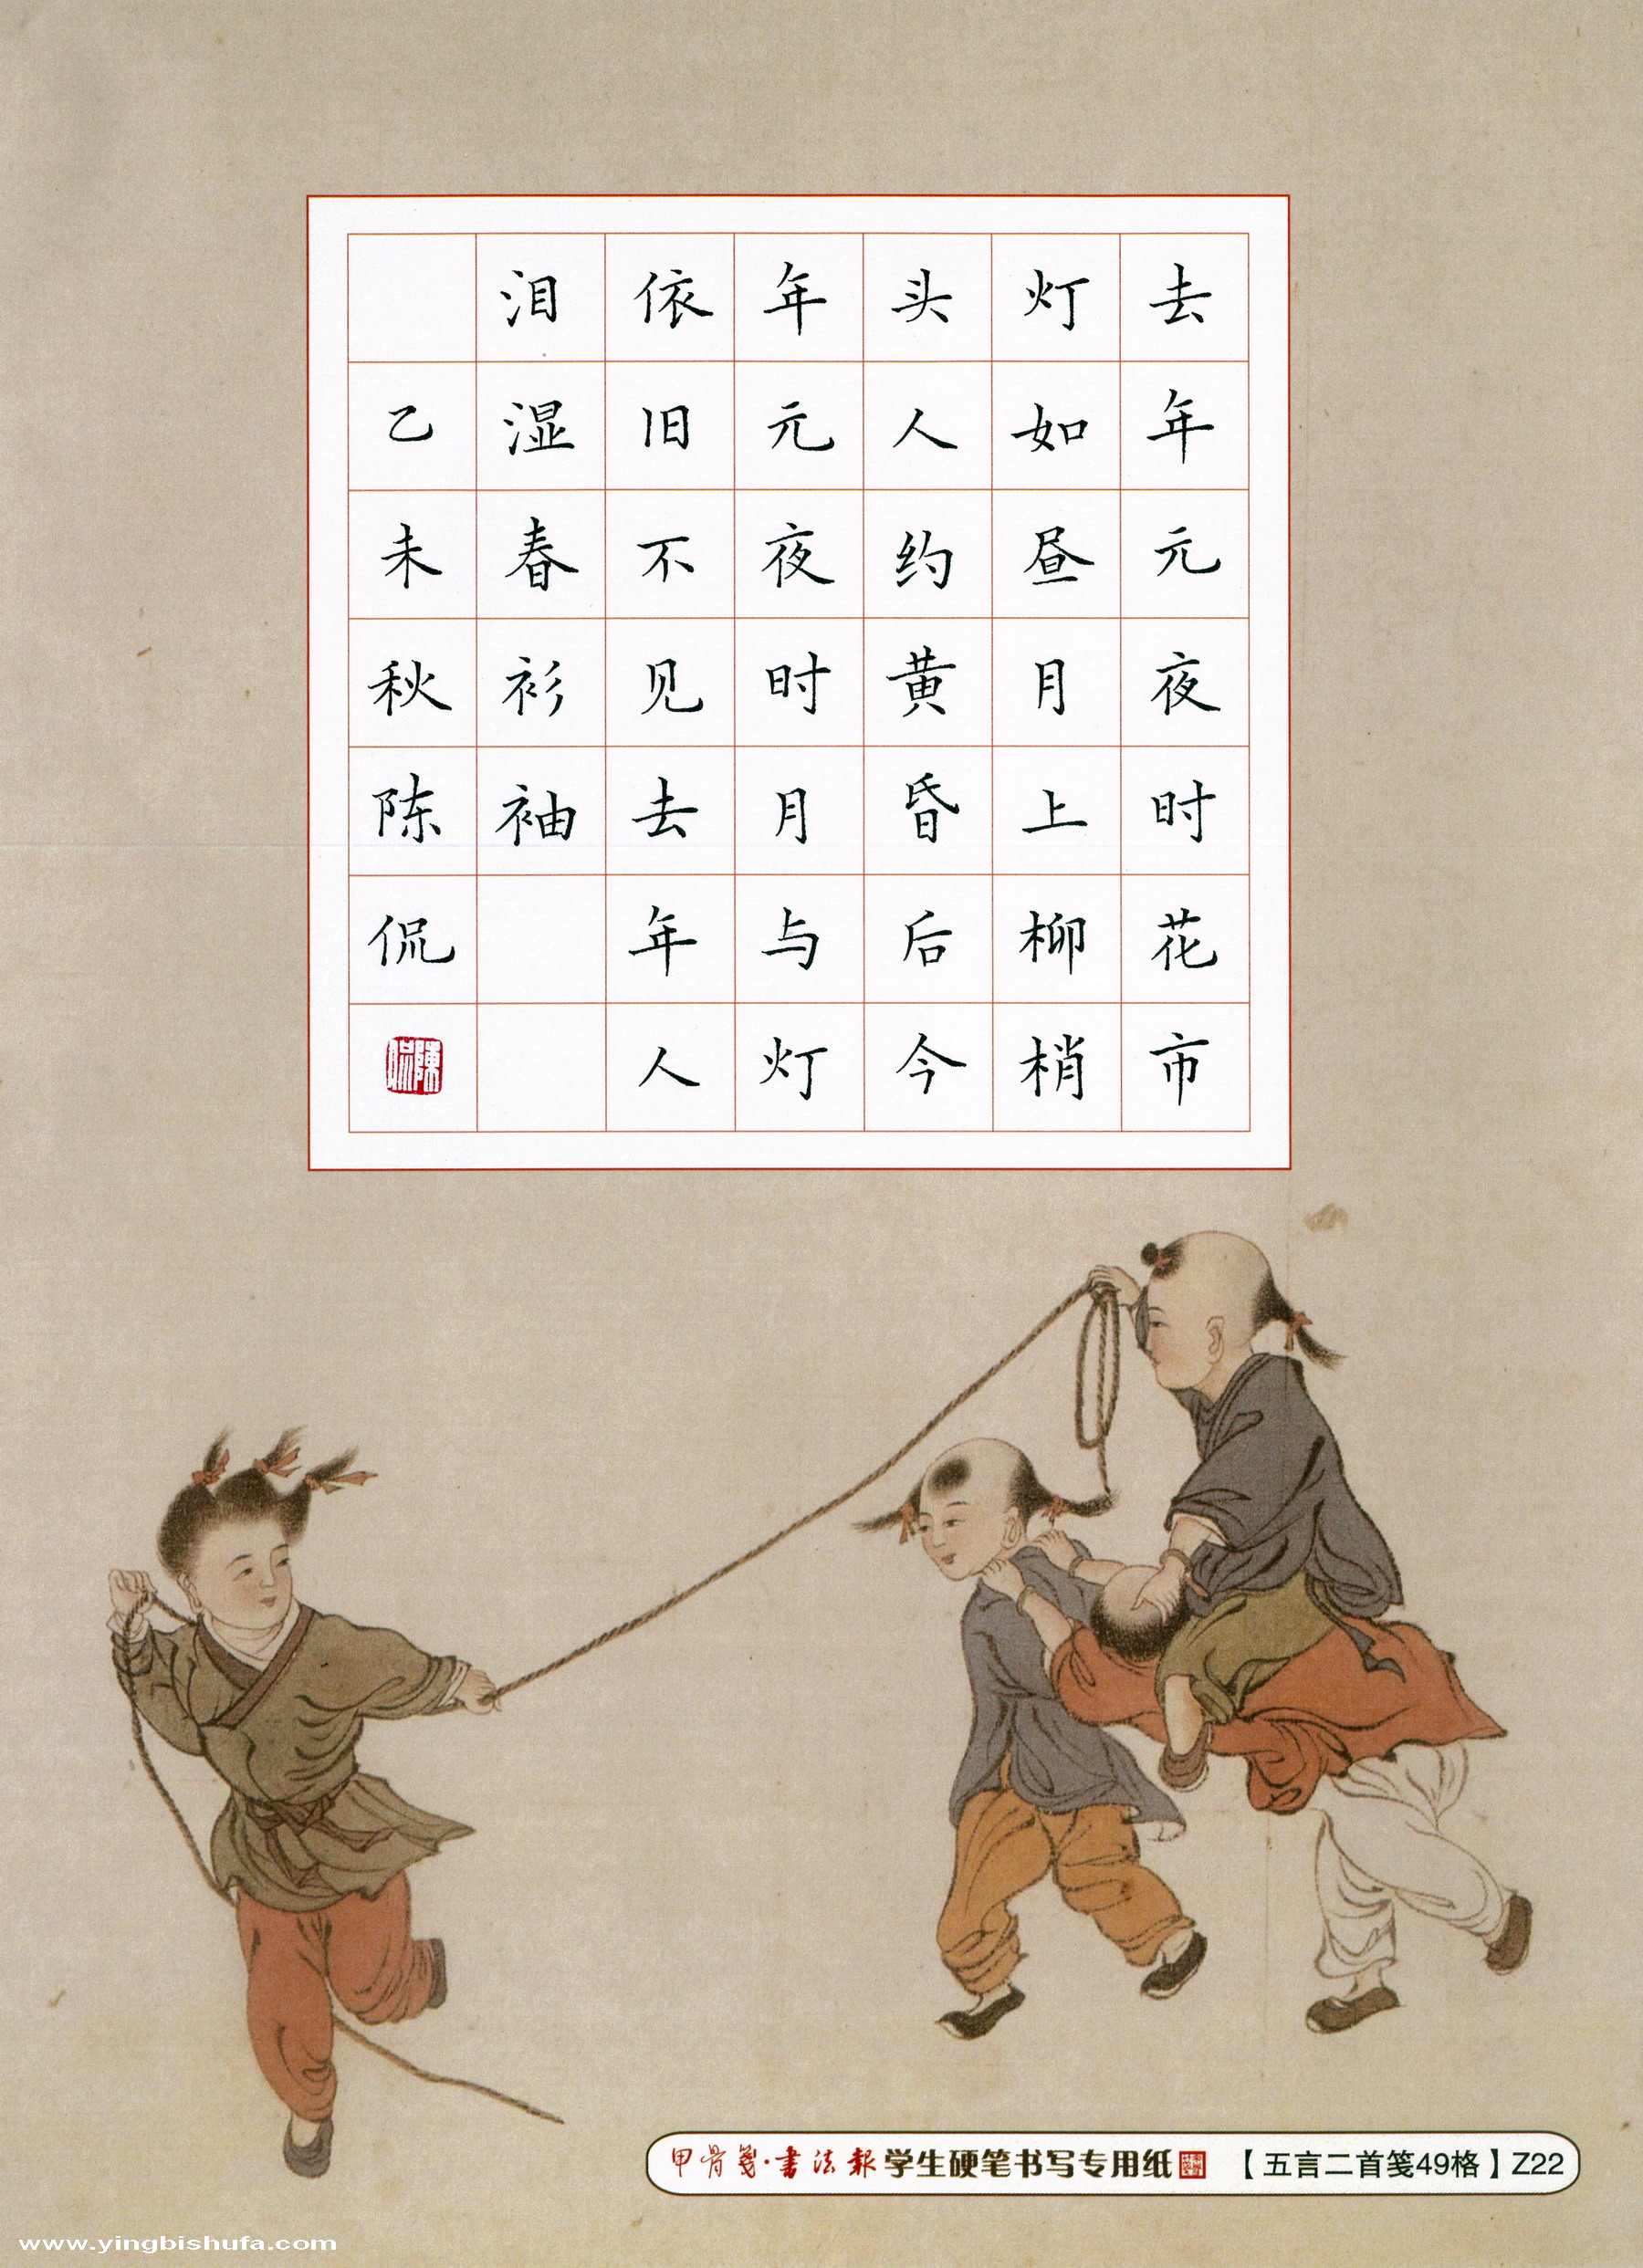 去年元夜时花市
灯如昼月上柳梢
头人约黄昏后今
年元夜时月与灯
依旧不见去年人
泪湿春衫袖
乙未秋陈侃
陳侃
甲骨箋·書法報学生硬笔书写专用纸 【五言二首笺49格】Z22
www.yingbishufa.com